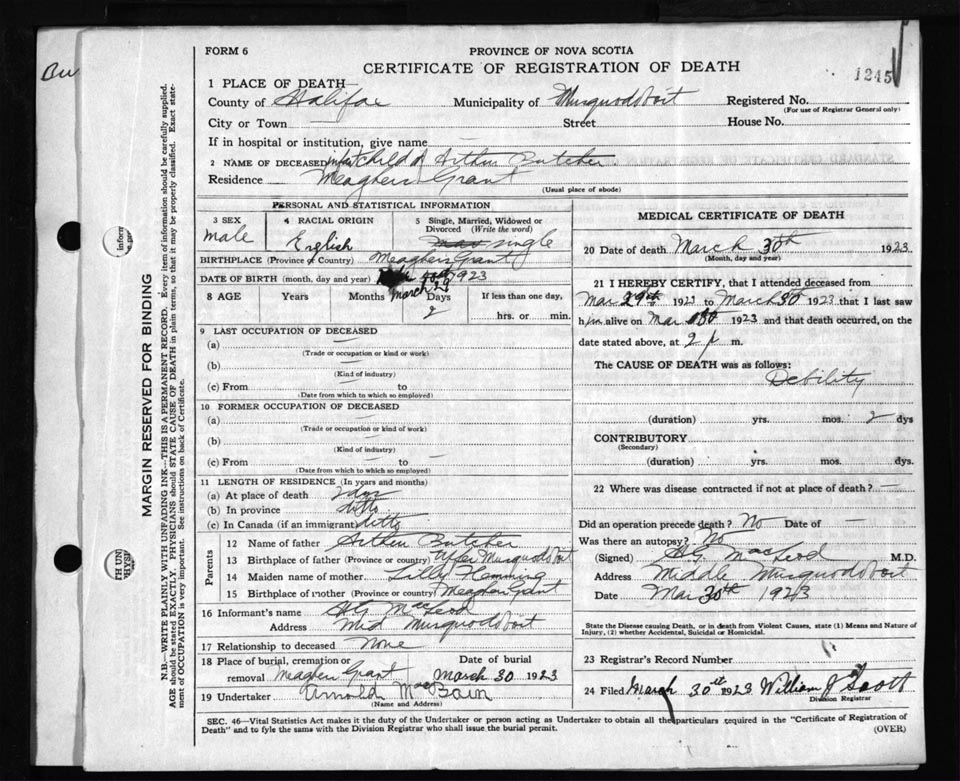 Bu
FORM 6
PROVINCE OF NOVA SCOTIA
CERTIFICATE OF REGISTRATION OF DEATH
1245
1 PLACE OF DEATH
County of Halifax Municipality of Musquodoboit Registered No.
(For use of Registrar General only)
City or Town Street House No.
If in hospital or institution, give name
2 NAME OF DECEASED infant child of Arthur Butcher
Residence Meaghers Grant
(Usual place of abode)
PERSONAL AND STATISTICAL INFORMATION
3 SEX 4 RACIAL ORIGIN 5 Single, Married, Widowed or
Divorced (Write the word)
male English single
BIRTHPLACE (Province or Country) Meaghers Grant
DATE OF BIRTH (month, day and year) 1923
March 29
8 AGE Years Months Days If less than one day,
2 hrs. or min.
9 LAST OCCUPATION OF DECEASED
(a)
(Trade or occupation or kind or work)
(b)
(Kind of industry)
(c) From to
(Date from which to which so employed)
10 FORMER OCCUPATION OF DECEASED
(a)
(Trade or occupation or kind of work)
(b)
(Kind of industry)
(c) From to
(Date from which to which so employed)
11 LENGTH OF RESIDENCE (In years and months)
(a) At place of death 2 days
(b) In province ditto
(c) In Canada (if an immigrant) ditto
Parents
12 Name of father Arthur Butcher
13 Birthplace of father (Province or country) Upper Musquodoboit
14 Maiden name of mother Lilly Flemming
15 Birthplace of mother (Province or country) Meaghers Grant
16 Informant's name HG MacLeod
Address Mid Musquodoboit
17 Relationship to deceased None
18 Place of burial, cremation or Date of burial
removal Meaghers Grant March 30 1923
19 Undertaker Arnold MacBain
(Name and Address)
MEDICAL CERTIFICATE OF DEATH
20 Date of death March 30th 1923
(Month, day and year)
21 I HEREBY CERTIFY, that I attended deceased from
Mar 29th 1923 to March 30 1923 that I last saw
him alive on Mar 1923 and that death occurred, on the
date stated above, at 2 p m.
The CAUSE OF DEATH was as follows:
Debility
(duration) yrs. mos. 2 dys
CONTRIBUTORY
(Secondary)
(duration) yrs. mos. dys.
22 Where was disease contracted if not at place of death?
Did an operation precede death? No Date of
Was there an autopsy? No
(Signed) HG MacLeod M.D.
Address Middle Musquodoboit
Date Mar 30th 1923
State the Disease causing Death, or in death from Violent Causes, state (1) Means and Nature of
Injury, (2) whether Accidental, Suicidal or Homicidal.
23 Registrar's Record Number
24 Filed March 30th 1923 William J Scott
Division Registrar
SEC. 46—Vital Statistics Act makes it the duty of the Undertaker or person acting as Undertaker to obtain all the particulars required in the "Certificate of Registration of
Death" and to fyle the same with the Division Registrar who shall issue the burial permit.
(OVER)
MARGIN RESERVED FOR BINDING
N.B.—WRITE PLAINLY WITH UNFADING INK—THIS IS A PERMANENT RECORD. Every item of information should be carefully supplied.
AGE should be stated EXACTLY. PHYSICIANS should STATE CAUSE OF DEATH in plain terms, so that it may be properly classified. Exact state-
ment of OCCUPATION is very important. See instructions on back of Certificate.